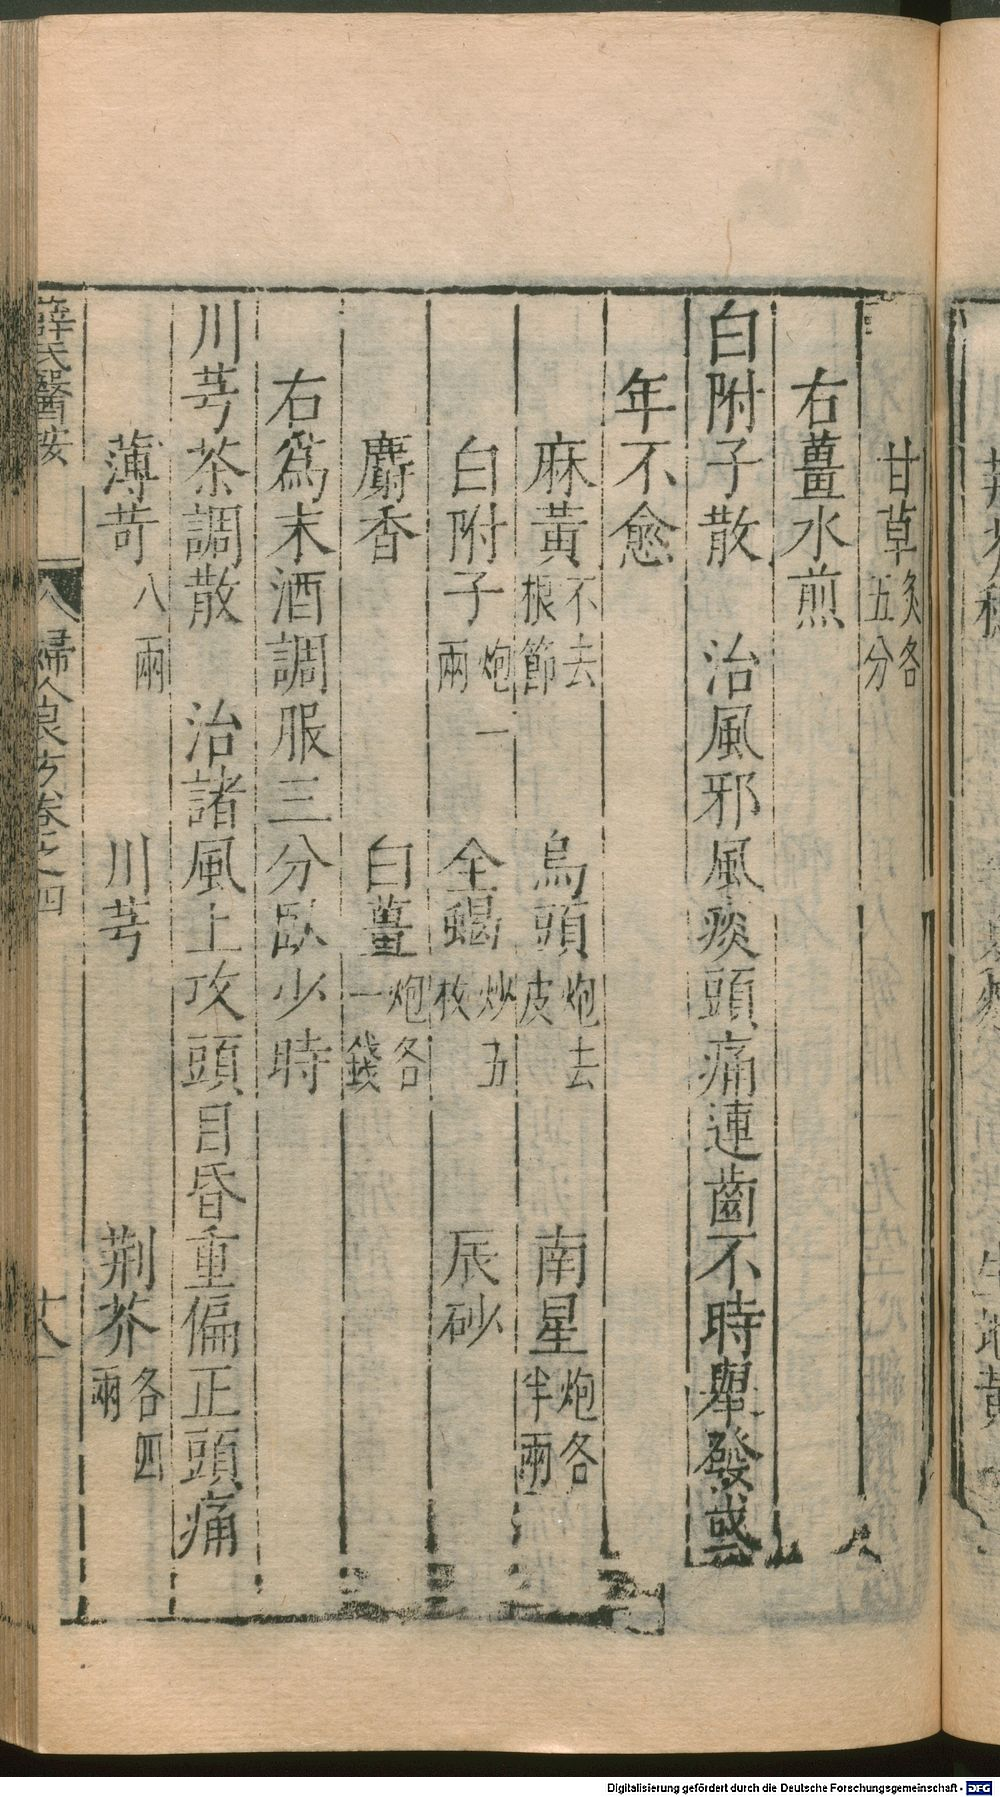 甘草炙各五分
右薑水煎
白附子散　治風邪風痰頭痛連齒不時舉發或
年不愈
麻黃不去根節　烏頭炮去皮　南星炮各半兩
白附子炮一兩　全蝎炒五枚　辰砂
麝香　白薑炮各一錢
右爲末酒調服三分臥少時
川芎茶調散　治諸風上攻頭目昏重偏正頭痛
薄苛八兩　川芎　荆芥各四兩
薛氏醫按　婦人良方卷之四　廿八
Digitalisierung gefördert durch die Deutsche Forschungsgemeinschaft - DFG